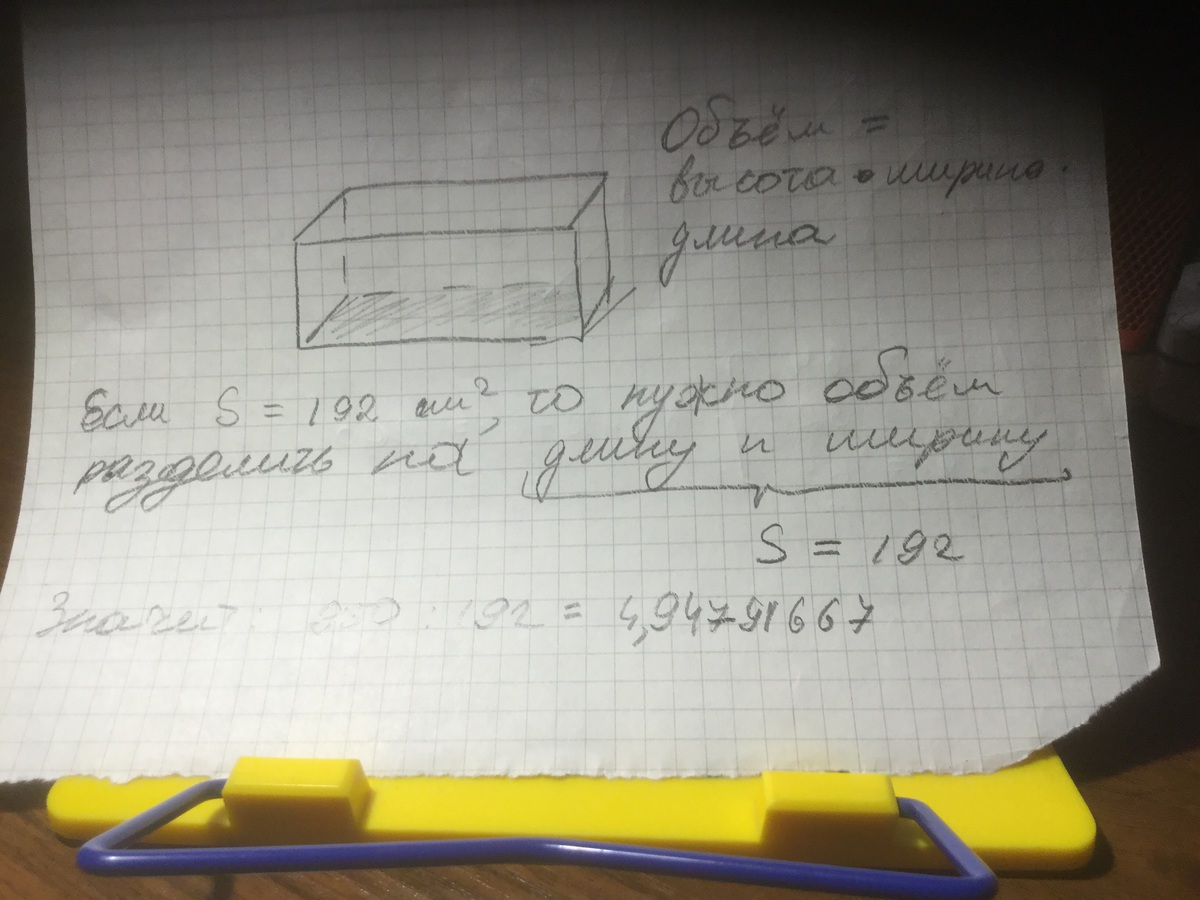 Объём =
высота • ширина •
длина
Если S = 192 см², то нужно объём
разделить на длину и ширину
S = 192
Значит: 950 : 192 = 4,94791667